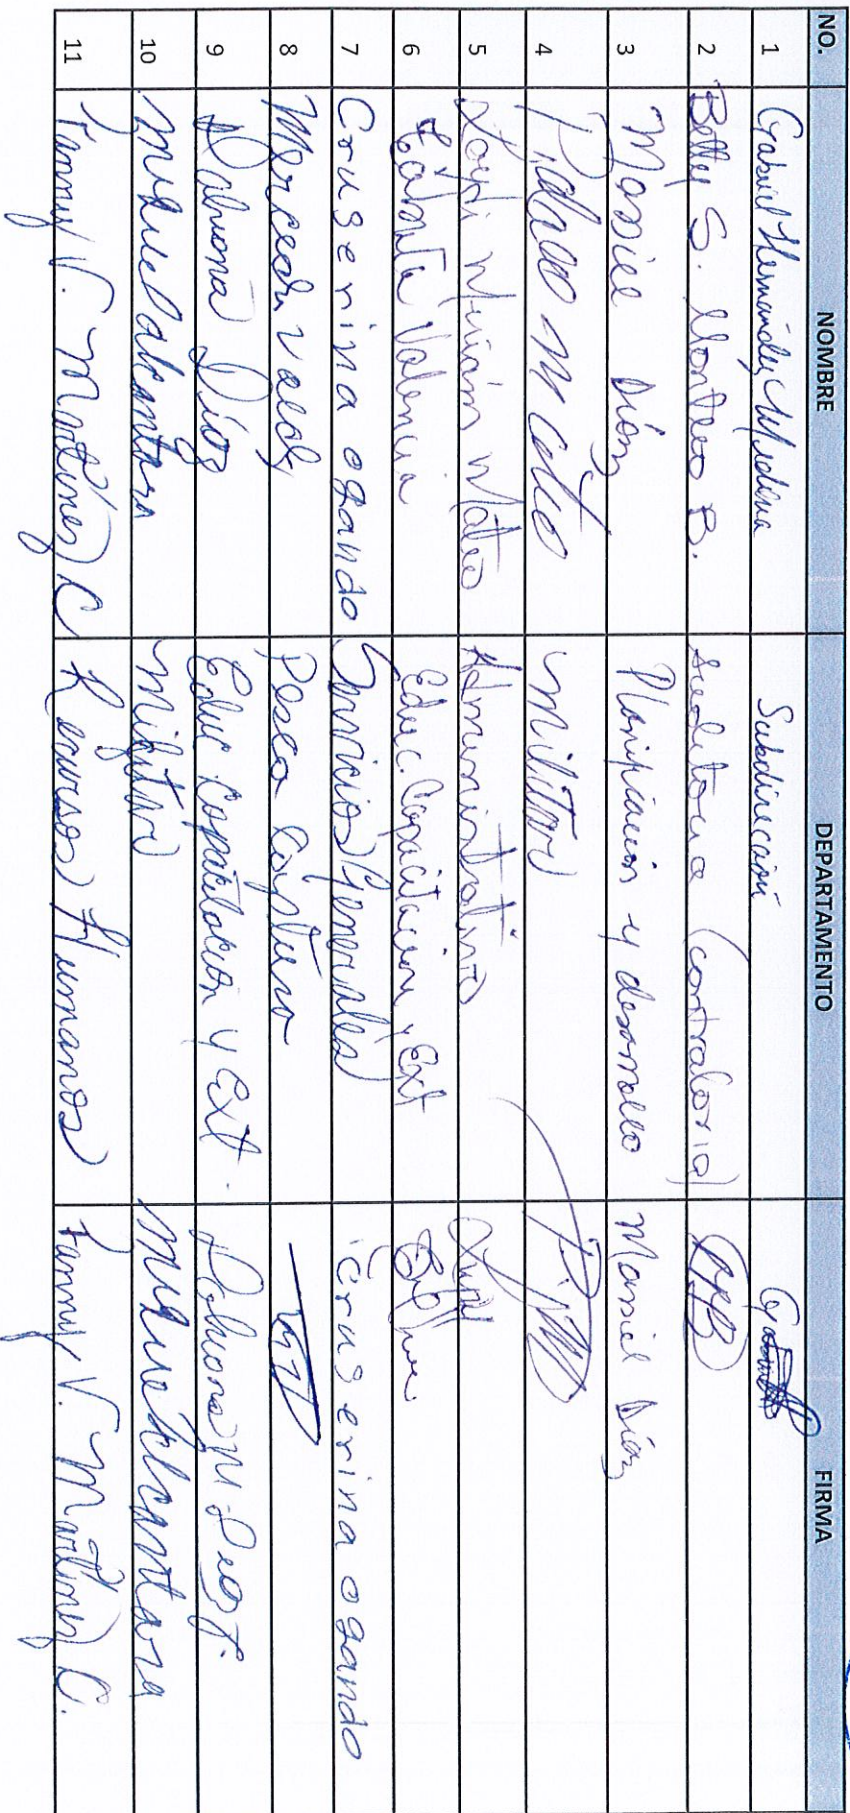 NO. NOMBRE DEPARTAMENTO FIRMA
1 Gabriel Hernández Medina Subdirección
2 Betty S. Montero B. Auditoria (contraloria)
3 Massiel Díaz Planificación y desarrollo Massiel Díaz
4 militar
5 Miriam Mateo Administrativo
6 Valencia Educ. Capacitación y Ext
7 Cruserina ogando Servicios Generales Cruserina ogando
8 Mercedes Valdez Pesca
9 Díaz Educ. Capacitación y Ext.
10 Miguel alcantara militar Miguel alcantara
11 Fanny V. Martínez C Recursos Humanos Fanny V. Martínez C.